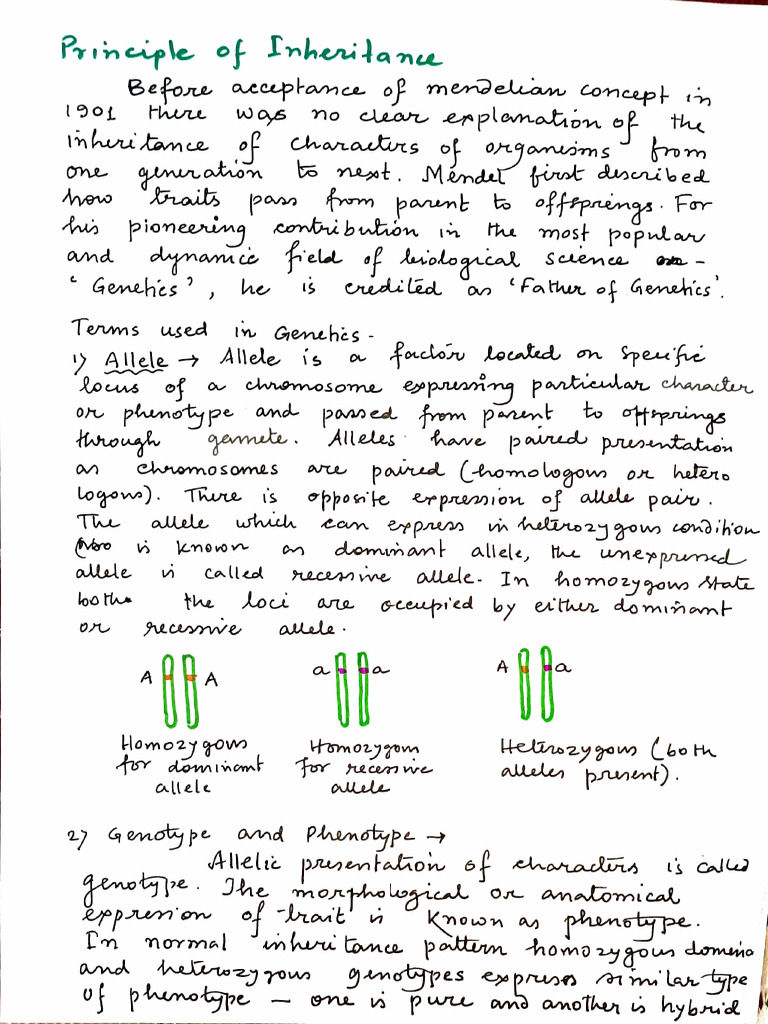 Principle of Inheritance
Before acceptance of mendelian concept in
1901 there was no clear explanation of the
inheritance of characters of organisms from
one generation to next. Mendel first described
how traits pass from parent to offsprings. For
his pioneering contribution in the most popular
and dynamic field of biological science -
'Genetics', he is credited as 'Father of Genetics'.
Terms used in Genetics -
1) Allele → Allele is a factor located on specific
locus of a chromosome expressing particular character
or phenotype and passed from parent to offsprings
through gamete. Alleles have paired presentation
as chromosomes are paired (homologous or hetero
logous). There is opposite expression of allele pair.
The allele which can express in heterozygous condition
is known as dominant allele, the unexpressed
allele is called recessive allele. In homozygous state
both the loci are occupied by either dominant
or recessive allele.
A A a a A a
Homozygous Homozygous Heterozygous (both
for dominant for recessive alleles present).
allele allele
2) Genotype and Phenotype →
Allelic presentation of characters is called
genotype. The morphological or anatomical
expression of trait is known as phenotype.
In normal inheritance pattern homozygous domina
and heterozygous genotypes express similar type
of phenotype – one is pure and another is hybrid